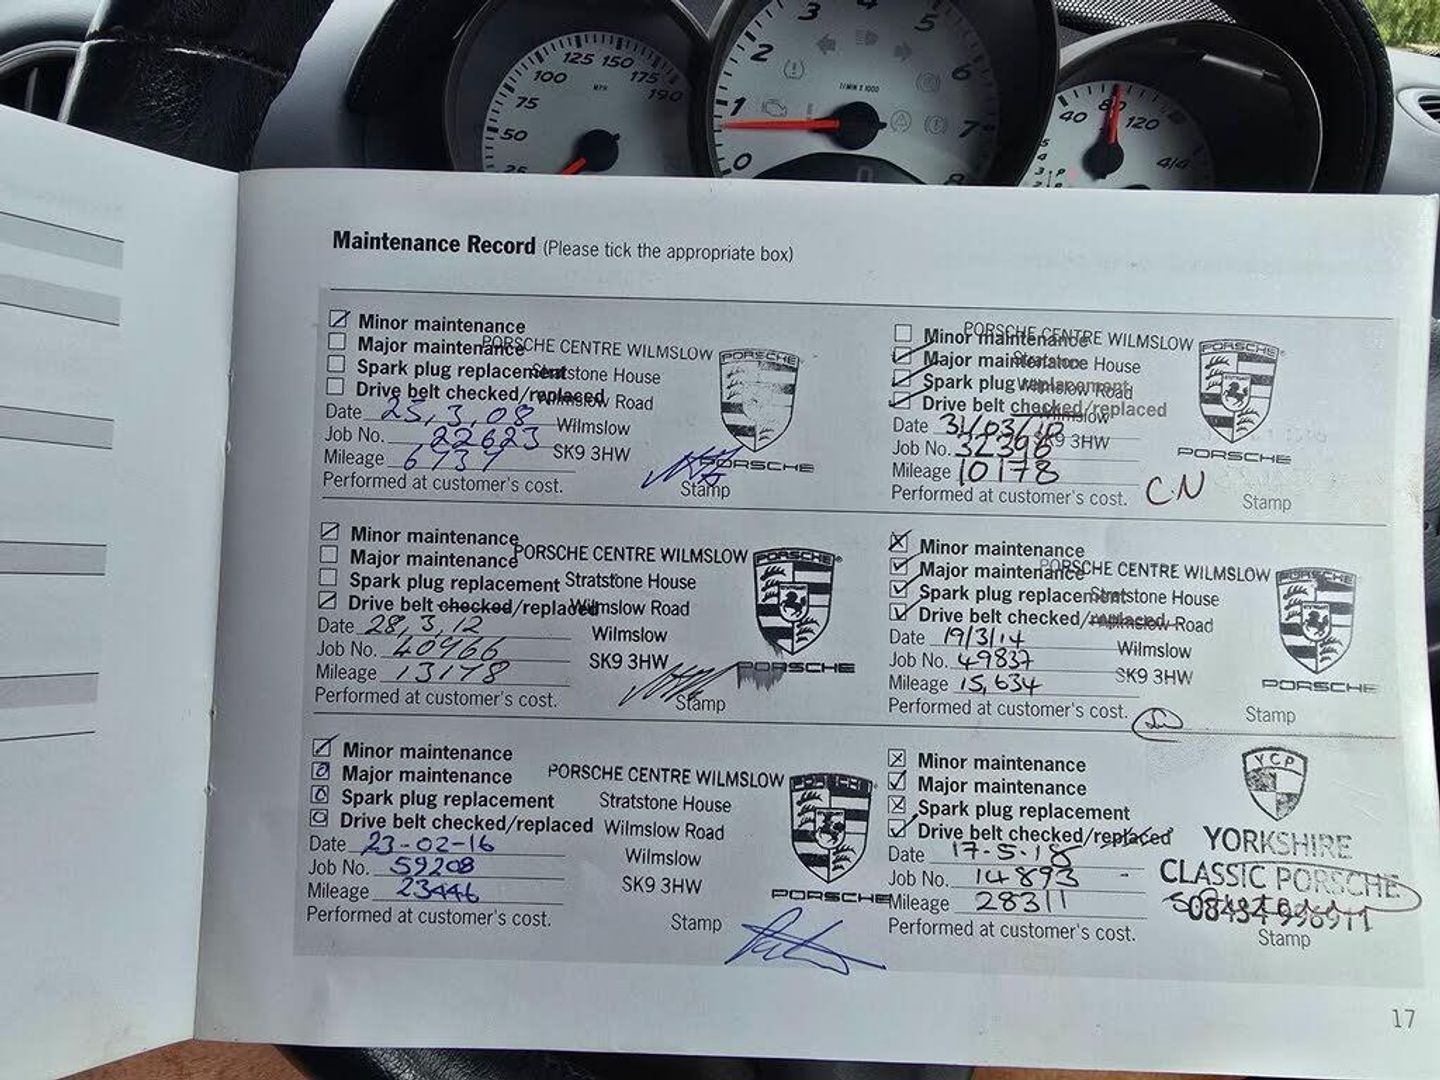 125 150
100 175
MPH 190
75
50
25
3 4 5
2 6
1/MIN X 1000
1 7
0 8
40 80 120
Maintenance Record (Please tick the appropriate box)
Minor maintenance
Major maintenance
Spark plug replacement
Drive belt checked/replaced
Date 25,3,08
Job No. 22623
Mileage
Performed at customer's cost.
PORSCHE CENTRE WILMSLOW
Stratstone House
Wilmslow Road
Wilmslow
SK9 3HW
PORSCHE
PORSCHE
Stamp
Minor maintenance
Major maintenance
Spark plug replacement
Drive belt checked/replaced
Date 31/03/10
Job No. 32398
Mileage 10178
Performed at customer's cost.
PORSCHE CENTRE WILMSLOW
Stratstone House
Wilmslow Road
Wilmslow
SK9 3HW
PORSCHE
PORSCHE
C.N
Stamp
Minor maintenance
Major maintenance
Spark plug replacement
Drive belt checked/replaced
Date 28,3,12
Job No. 40966
Mileage 13178
Performed at customer's cost.
PORSCHE CENTRE WILMSLOW
Stratstone House
Wilmslow Road
Wilmslow
SK9 3HW
PORSCHE
PORSCHE
Stamp
Minor maintenance
Major maintenance
Spark plug replacement
Drive belt checked/replaced
Date 19/3/14
Job No. 49837
Mileage 15,634
Performed at customer's cost.
PORSCHE CENTRE WILMSLOW
Stratstone House
Wilmslow Road
Wilmslow
SK9 3HW
PORSCHE
PORSCHE
Stamp
Minor maintenance
Major maintenance
Spark plug replacement
Drive belt checked/replaced
Date 23-02-16
Job No. 59208
Mileage 23446
Performed at customer's cost.
PORSCHE CENTRE WILMSLOW
Stratstone House
Wilmslow Road
Wilmslow
SK9 3HW
PORSCHE
PORSCHE
Stamp
Minor maintenance
Major maintenance
Spark plug replacement
Drive belt checked/replaced
Date 17-5-18
Job No. 14893
Mileage 28311
Performed at customer's cost.
YCP
YORKSHIRE
CLASSIC PORSCHE
08434 996911
Stamp
17